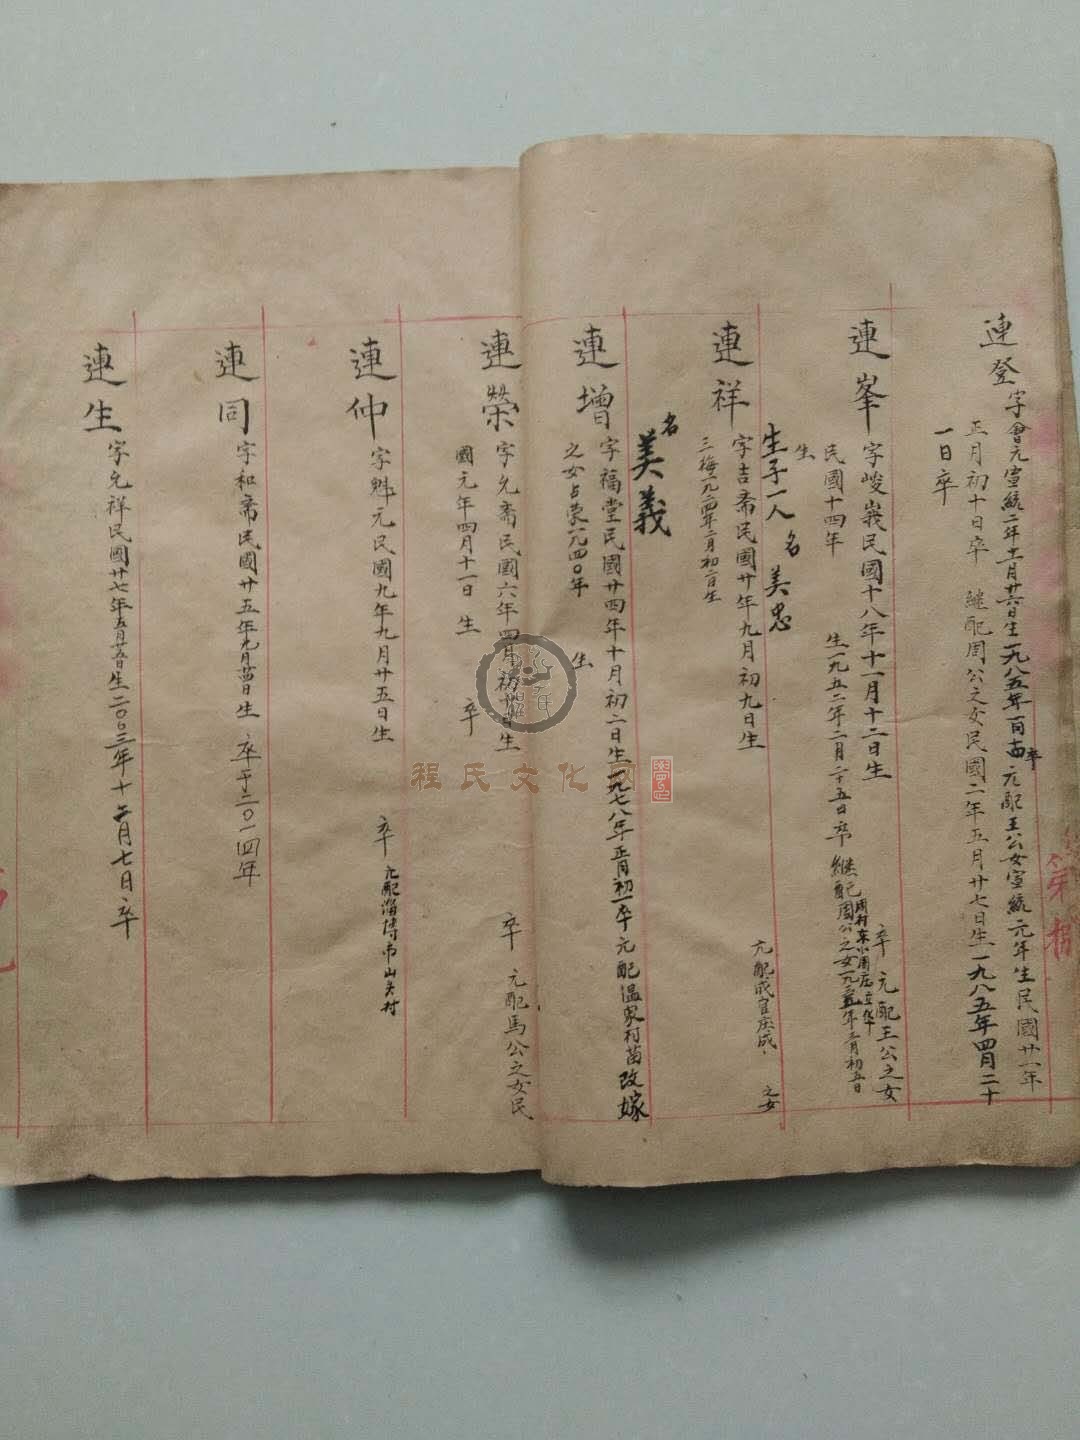 連登字會元宣統二年十一月廿六日生一九八五年 卒元配王公女宣統元年生民國廿一年
正月初十日卒 繼配周公之女民國二年五月廿七日生一九八五年四月二十
一日卒
連峯字峻峩民國十八年十一月十二日生 卒元配王公之女
民國十四年 生一九五二年二月二十五日卒繼配周公之女 年二月初五日
周村东小周庄立华
生
生子一人名美忠
連祥字吉斋民國廿年九月初九日生 元配成官庄成 之女
三梅一九二四年二月初二日生
名美義
連增字福堂民國廿四年十月初二日生一九七八年正月初一卒元配温家村苗改嫁
之女占荣一九四〇年 生
連榮字允斋民國六年四月初十日生 卒 元配馬公之女民
國元年四月十一日 生 卒
連仲字魁元民國九年九月廿五日生 卒元配淄博市山头村
連同字和斋民國廿五年九月 日生 卒于二〇一四年
連生字允祥民國廿七年五月 日生二〇〇三年十二月七日卒
程氏文化网